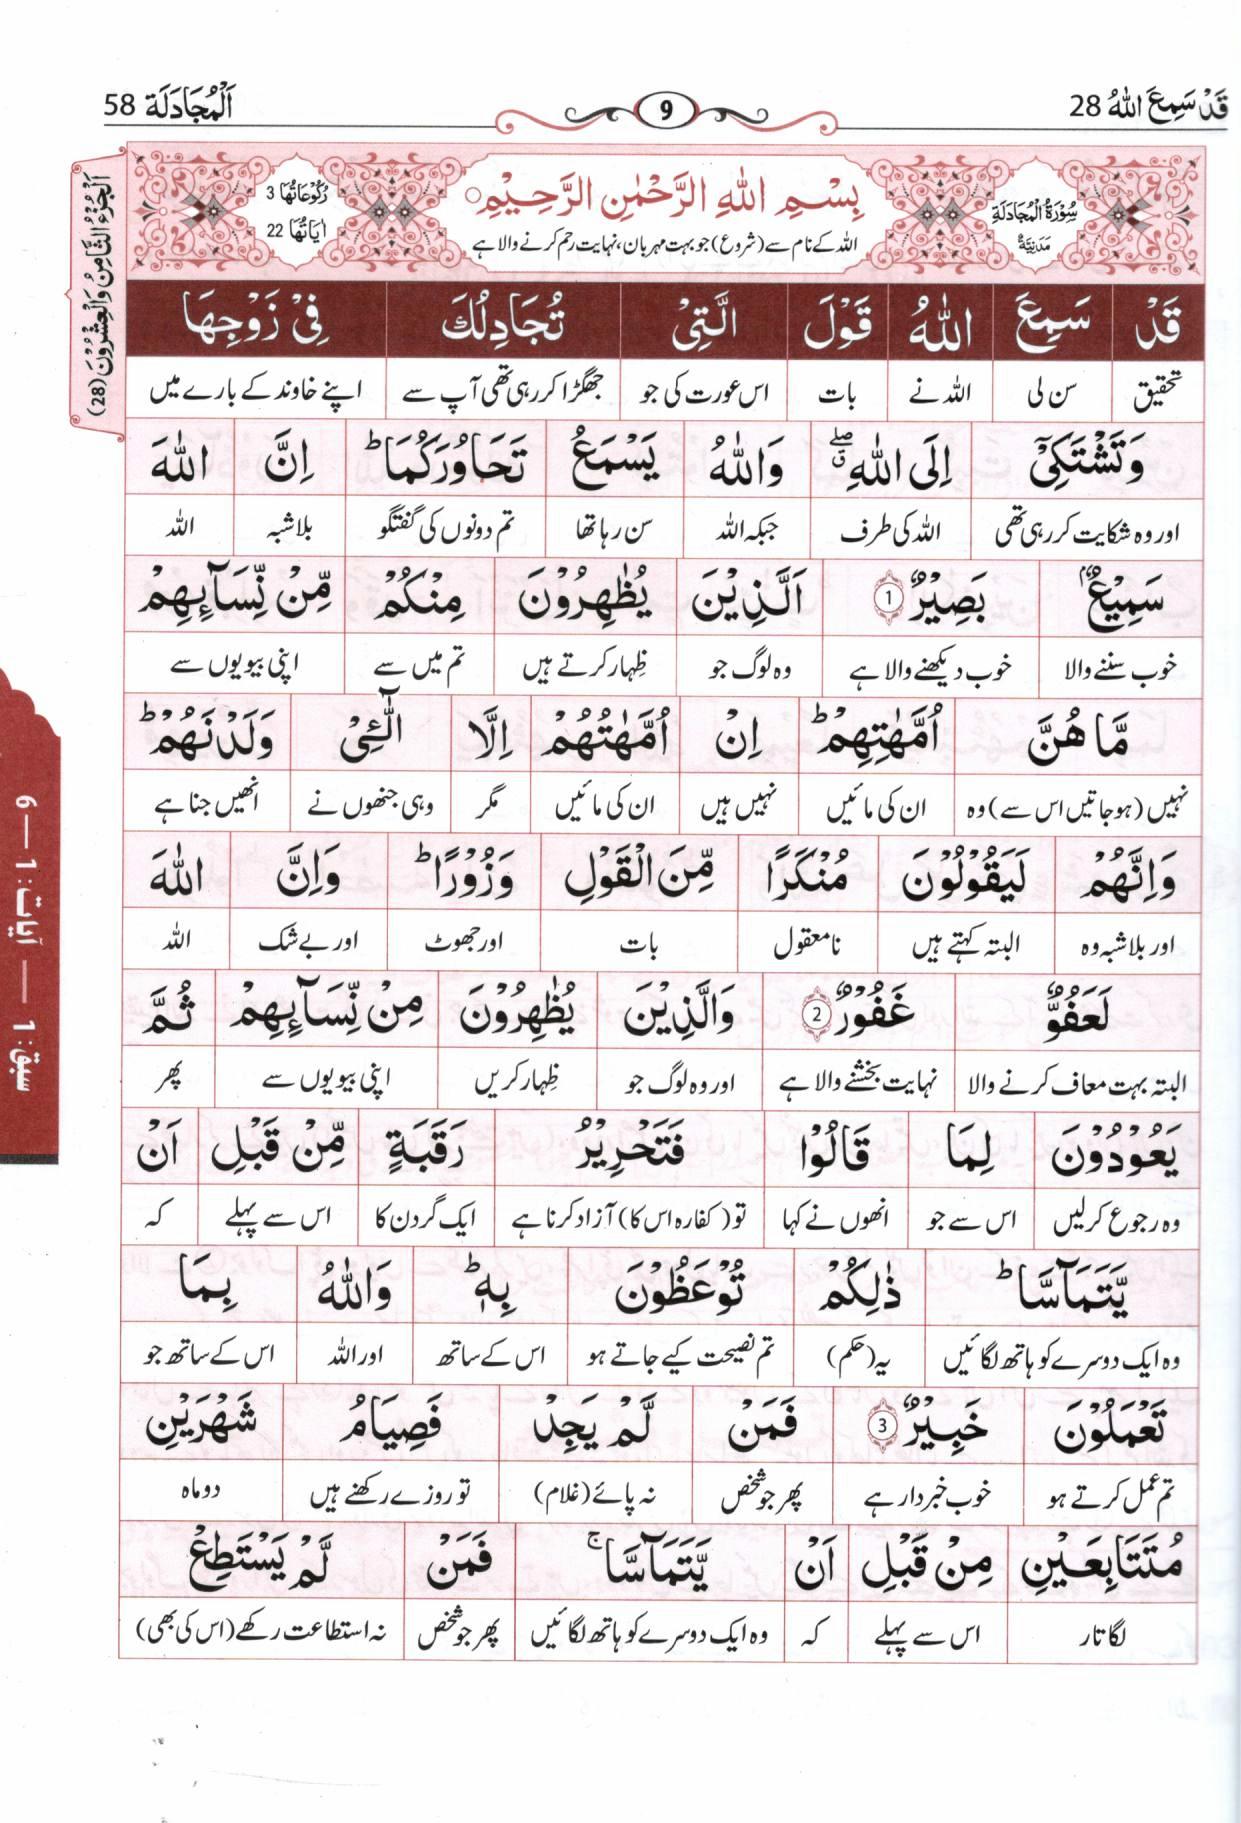 قَدْ سَمِعَ اللّٰهُ 28
9
اَلْمُجَادَلَة 58
اَلْجُزْءُ الثَّامِنُ وَالْعِشْرُوْنَ (28)
سُوْرَةُ الْمُجَادَلَةِ مَدَنِيَّةٌ
بِسْمِ اللّٰهِ الرَّحْمٰنِ الرَّحِيْمِ
اللہ کے نام سے (شروع) جو بہت مہربان، نہایت رحم کرنے والا ہے
رُكُوْعَاتُهَا 3
اٰيَاتُهَا 22
قَدْ سَمِعَ اللّٰهُ قَوْلَ الَّتِيْ تُجَادِلُكَ فِيْ زَوْجِهَا
تحقیق سن لی اللہ نے بات اس عورت کی جو جھگڑا کر رہی تھی آپ سے اپنے خاوند کے بارے میں
وَتَشْتَكِيْٓ اِلَى اللّٰهِ ۖ وَاللّٰهُ يَسْمَعُ تَحَاوُرَكُمَا ؕ اِنَّ اللّٰهَ
اور وہ شکایت کر رہی تھی اللہ کی طرف جبکہ اللہ سن رہا تھا تم دونوں کی گفتگو بلاشبہ اللہ
سَمِيْعٌۢ بَصِيْرٌ 1 اَلَّذِيْنَ يُظٰهِرُوْنَ مِنْكُمْ مِّنْ نِّسَآىِٕهِمْ
خوب سننے والا خوب دیکھنے والا ہے وہ لوگ جو ظِہار کرتے ہیں تم میں سے اپنی بیویوں سے
مَّا هُنَّ اُمَّهٰتِهِمْ ؕ اِنْ اُمَّهٰتُهُمْ اِلَّا الّٰٓـِٔيْ وَلَدْنَهُمْ ؕ
نہیں (ہو جاتیں اس سے) وہ ان کی مائیں نہیں ہیں ان کی مائیں مگر وہی جنھوں نے انھیں جنا ہے
وَاِنَّهُمْ لَيَقُوْلُوْنَ مُنْكَرًا مِّنَ الْقَوْلِ وَزُوْرًا ؕ وَاِنَّ اللّٰهَ
اور بلاشبہ وہ البتہ کہتے ہیں نامعقول بات اور جھوٹ اور بے شک اللہ
لَعَفُوٌّ غَفُوْرٌ 2 وَالَّذِيْنَ يُظٰهِرُوْنَ مِنْ نِّسَآىِٕهِمْ ثُمَّ
البتہ بہت معاف کرنے والا نہایت بخشنے والا ہے اور وہ لوگ جو ظِہار کریں اپنی بیویوں سے پھر
يَعُوْدُوْنَ لِمَا قَالُوْا فَتَحْرِيْرُ رَقَبَةٍ مِّنْ قَبْلِ اَنْ
وہ رجوع کر لیں اس سے جو انھوں نے کہا تو (کفارہ اس کا) آزاد کرنا ہے ایک گردن کا اس سے پہلے کہ
يَّتَمَآسَّا ؕ ذٰلِكُمْ تُوْعَظُوْنَ بِهٖ ؕ وَاللّٰهُ بِمَا
وہ ایک دوسرے کو ہاتھ لگائیں یہ (حکم) تم نصیحت کیے جاتے ہو اس کے ساتھ اور اللہ اس کے ساتھ جو
تَعْمَلُوْنَ خَبِيْرٌ 3 فَمَنْ لَّمْ يَجِدْ فَصِيَامُ شَهْرَيْنِ
تم عمل کرتے ہو خوب خبردار ہے پھر جو شخص نہ پائے (غلام) تو روزے رکھنے ہیں دو ماہ
مُتَتَابِعَيْنِ مِنْ قَبْلِ اَنْ يَّتَمَآسَّا ۚ فَمَنْ لَّمْ يَسْتَطِعْ
لگاتار اس سے پہلے کہ وہ ایک دوسرے کو ہاتھ لگائیں پھر جو شخص نہ استطاعت رکھے (اس کی بھی)
سبق: 1 — آیات: 1 — 6